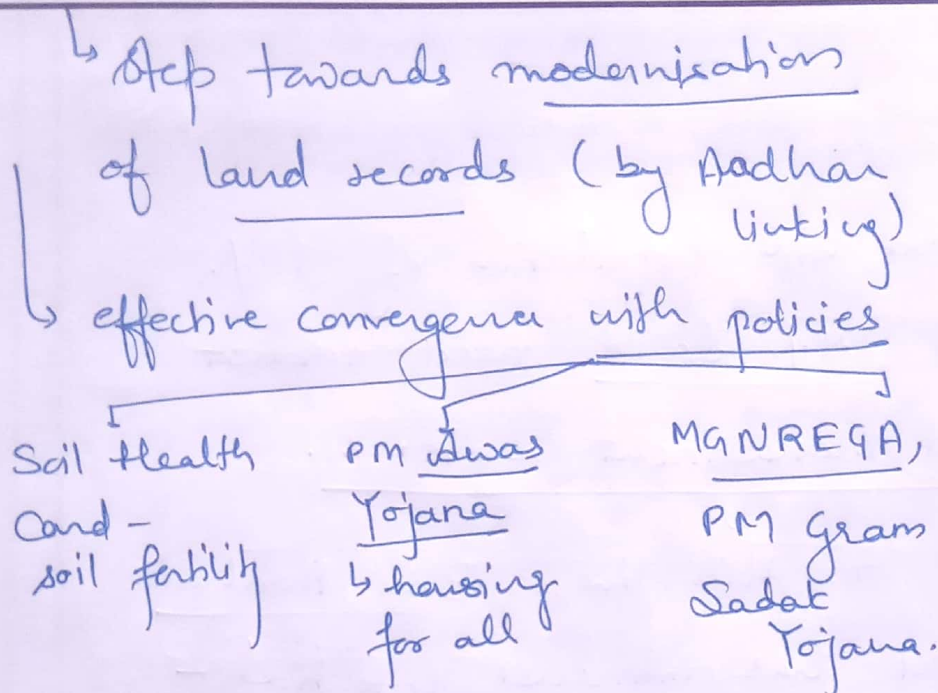 ↳ Step towards modernisation
of land records (by Aadhar
linking)
↳ effective convergence with policies
Soil Health
Card -
soil fertility
PM Awas
Yojana
↳ housing
for all
MGNREGA,
PM Gram
Sadak
Yojana.